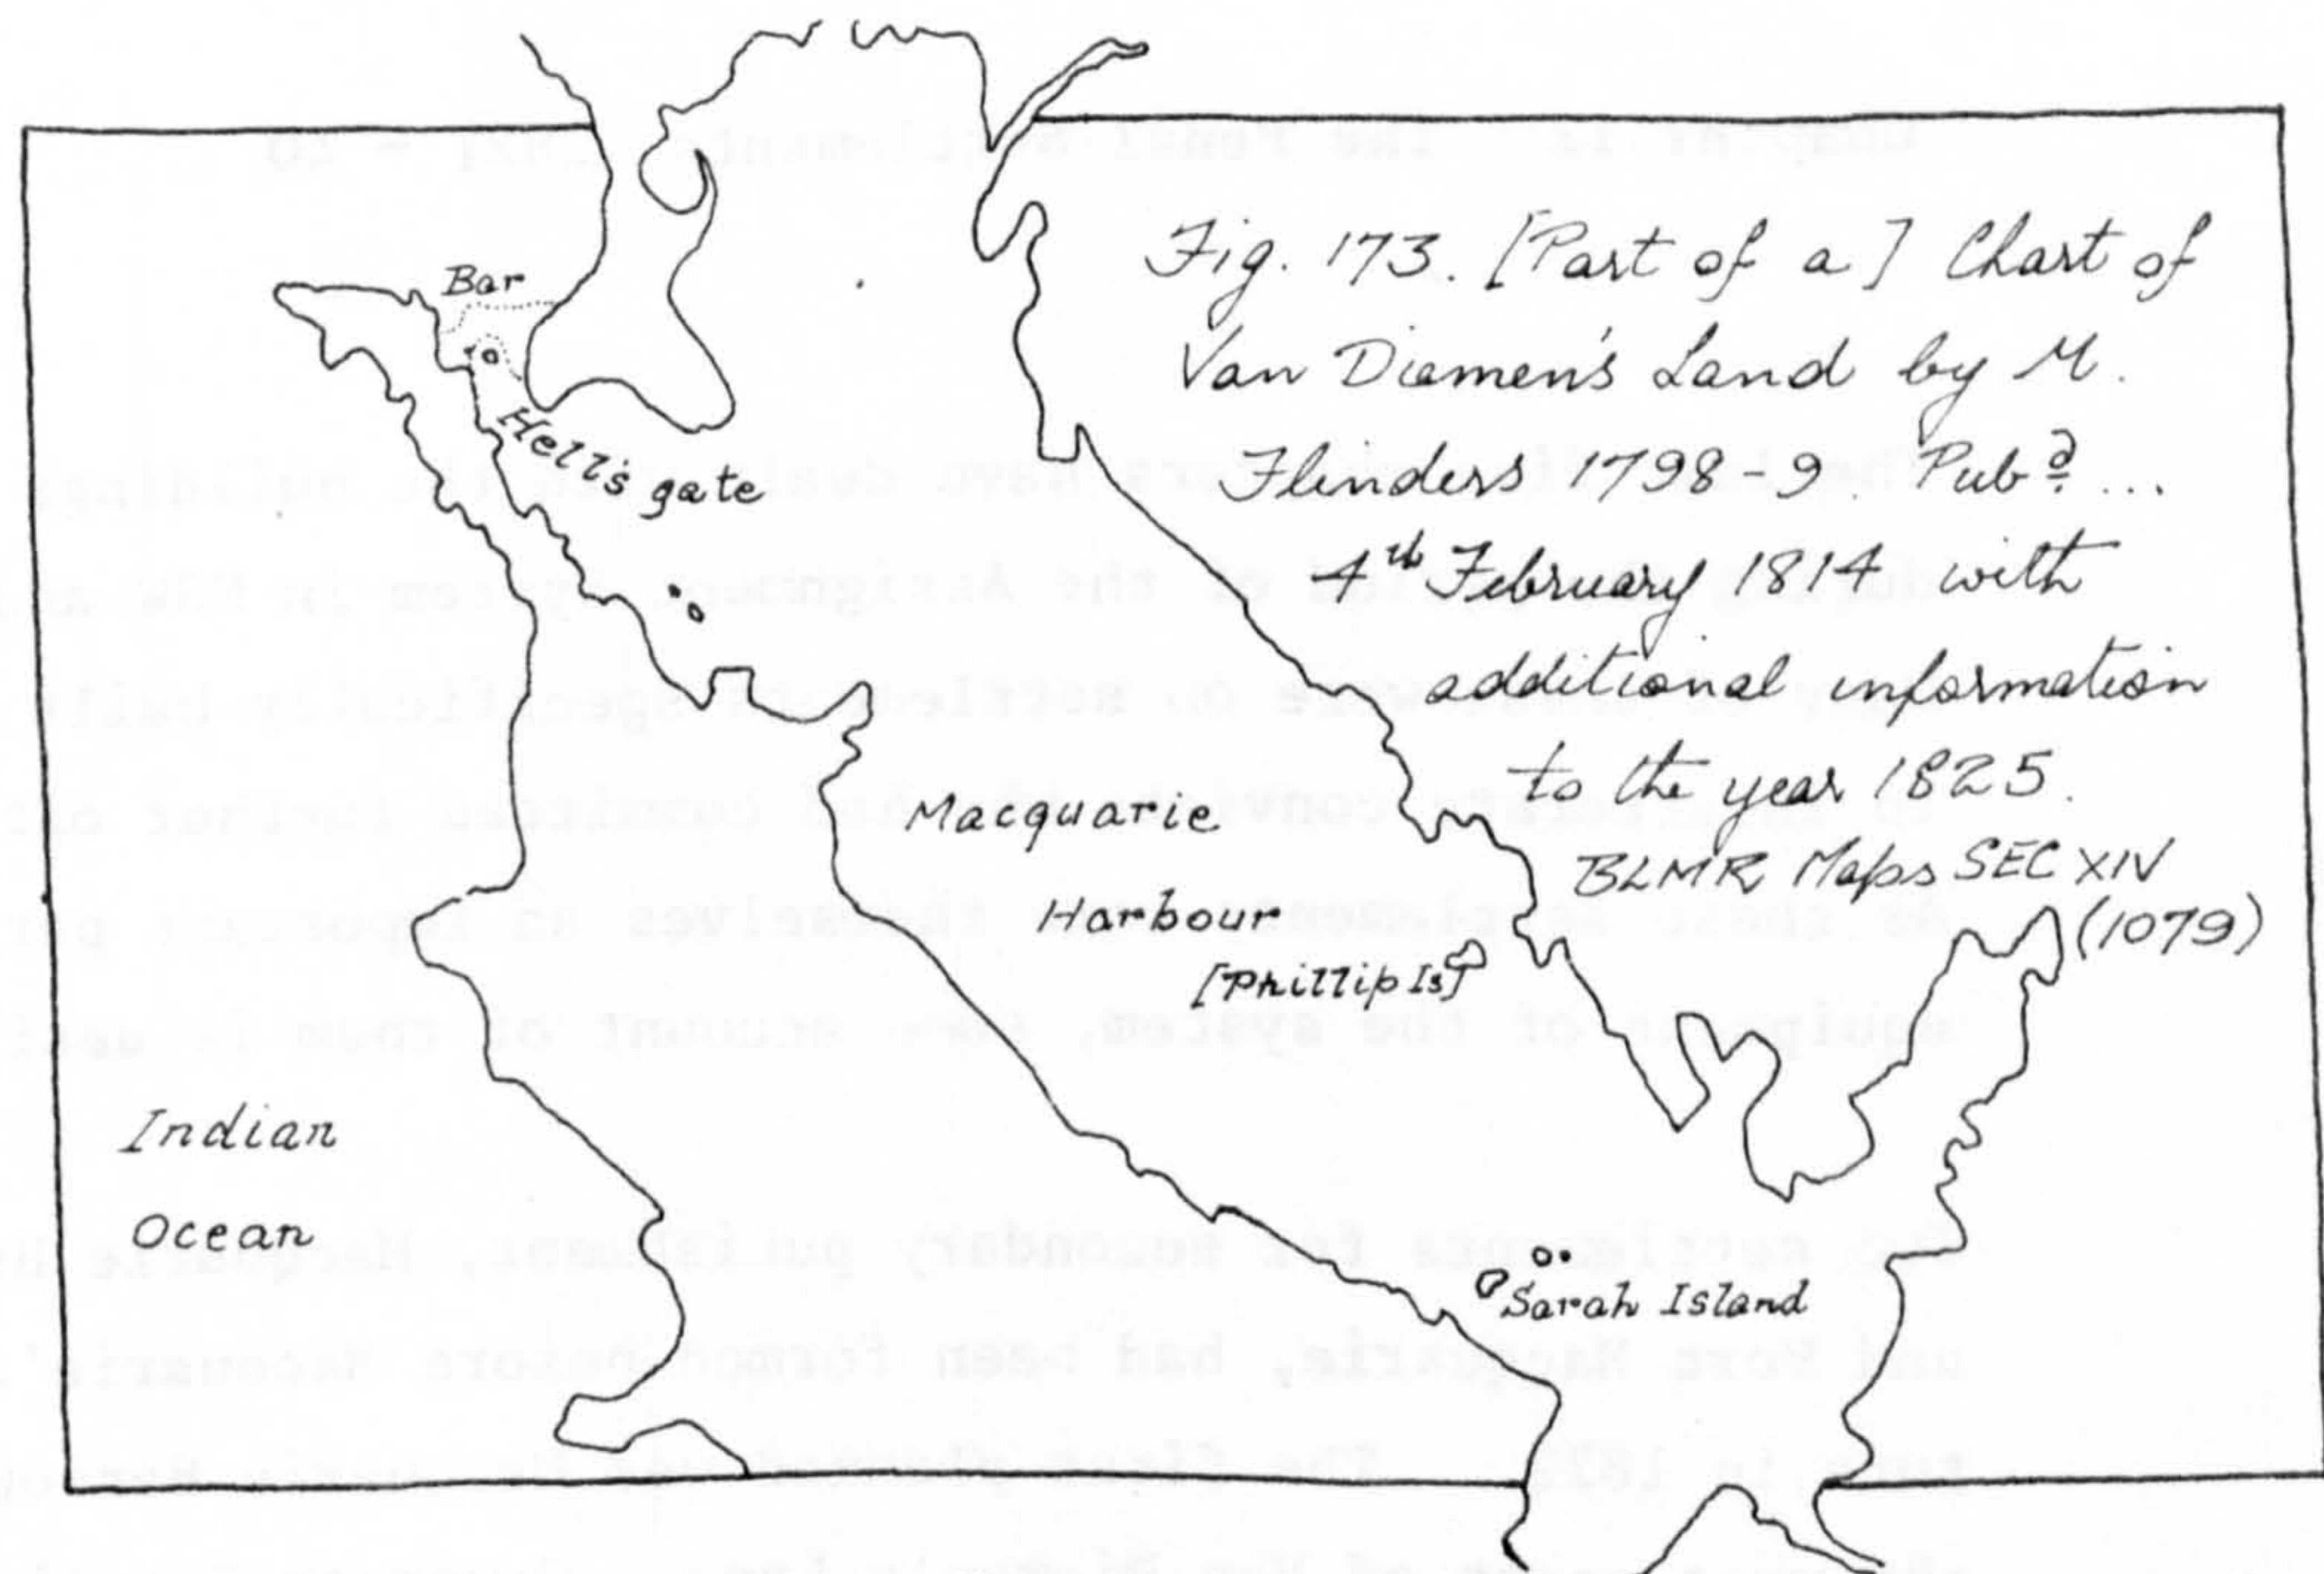 Fig. 173. [Part of a] Chart of
Van Diemen's Land by M.
Flinders 1798-9. Pubd...
4th February 1814 with
additional information
to the year 1825.
BLMR Maps SEC XIV
(1079)
Bar
Hell's gate
Macquarie
Harbour
[Phillip Is]
Sarah Island
Indian
Ocean